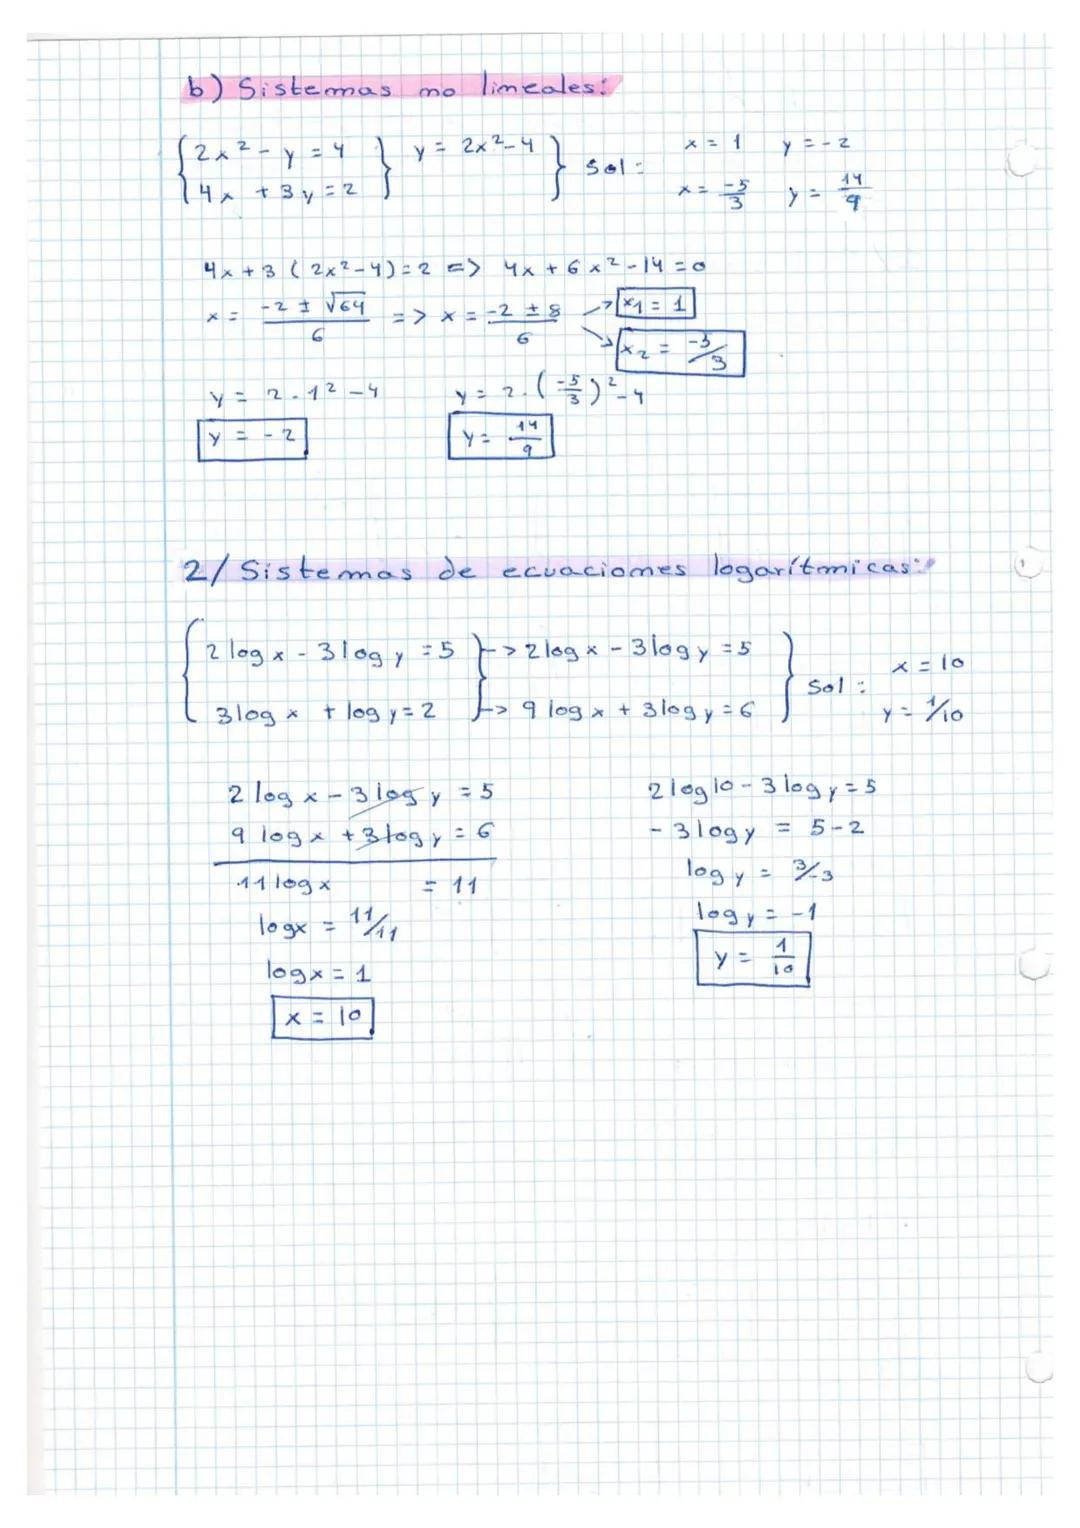 b) Sistemas no lineales:
{2x² - y = 4 } y = 2x²-4 } Sol: x = 1 y = -2
{4x + 3y = 2 } x = -5/3 y = 14/9
4x + 3 (2x²-4) = 2 => 4x + 6x² - 14 = 0
x = (-2 ± √64)/6 => x = (-2 ± 8)/6 → x₁ = 1
→ x₂ = -5/3
y = 2 · 1² - 4 y = 2 · (-5/3)² - 4
y = -2 y = 14/9
2/ Sistemas de ecuaciones logarítmicas:
{2 log x - 3 log y = 5 } -> 2 log x - 3 log y = 5 } Sol: x = 10
{3 log x + log y = 2 } -> 9 log x + 3 log y = 6 } y = 1/10
2 log x - 3 log y = 5
9 log x + 3 log y = 6
11 log x = 11
log x = 11/11
log x = 1
x = 10
2 log 10 - 3 log y = 5
- 3 log y = 5 - 2
log y = 3/-3
log y = -1
y = 1/10